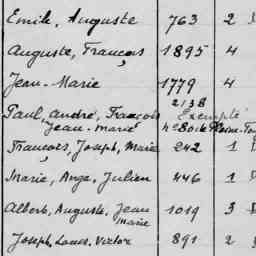 Emile, Auguste 763 2
Auguste, Françcois 1895 4
Jean-Marie 1779 4
2138
Paul, andré, François Exempté
Jean-marie
François, Joseph, Marie 242 1
Marie, Ange, Julien 446 1
Albert, Auguste, Jean 1019 3
Marie
Joseph, Louis, Victor 891 2